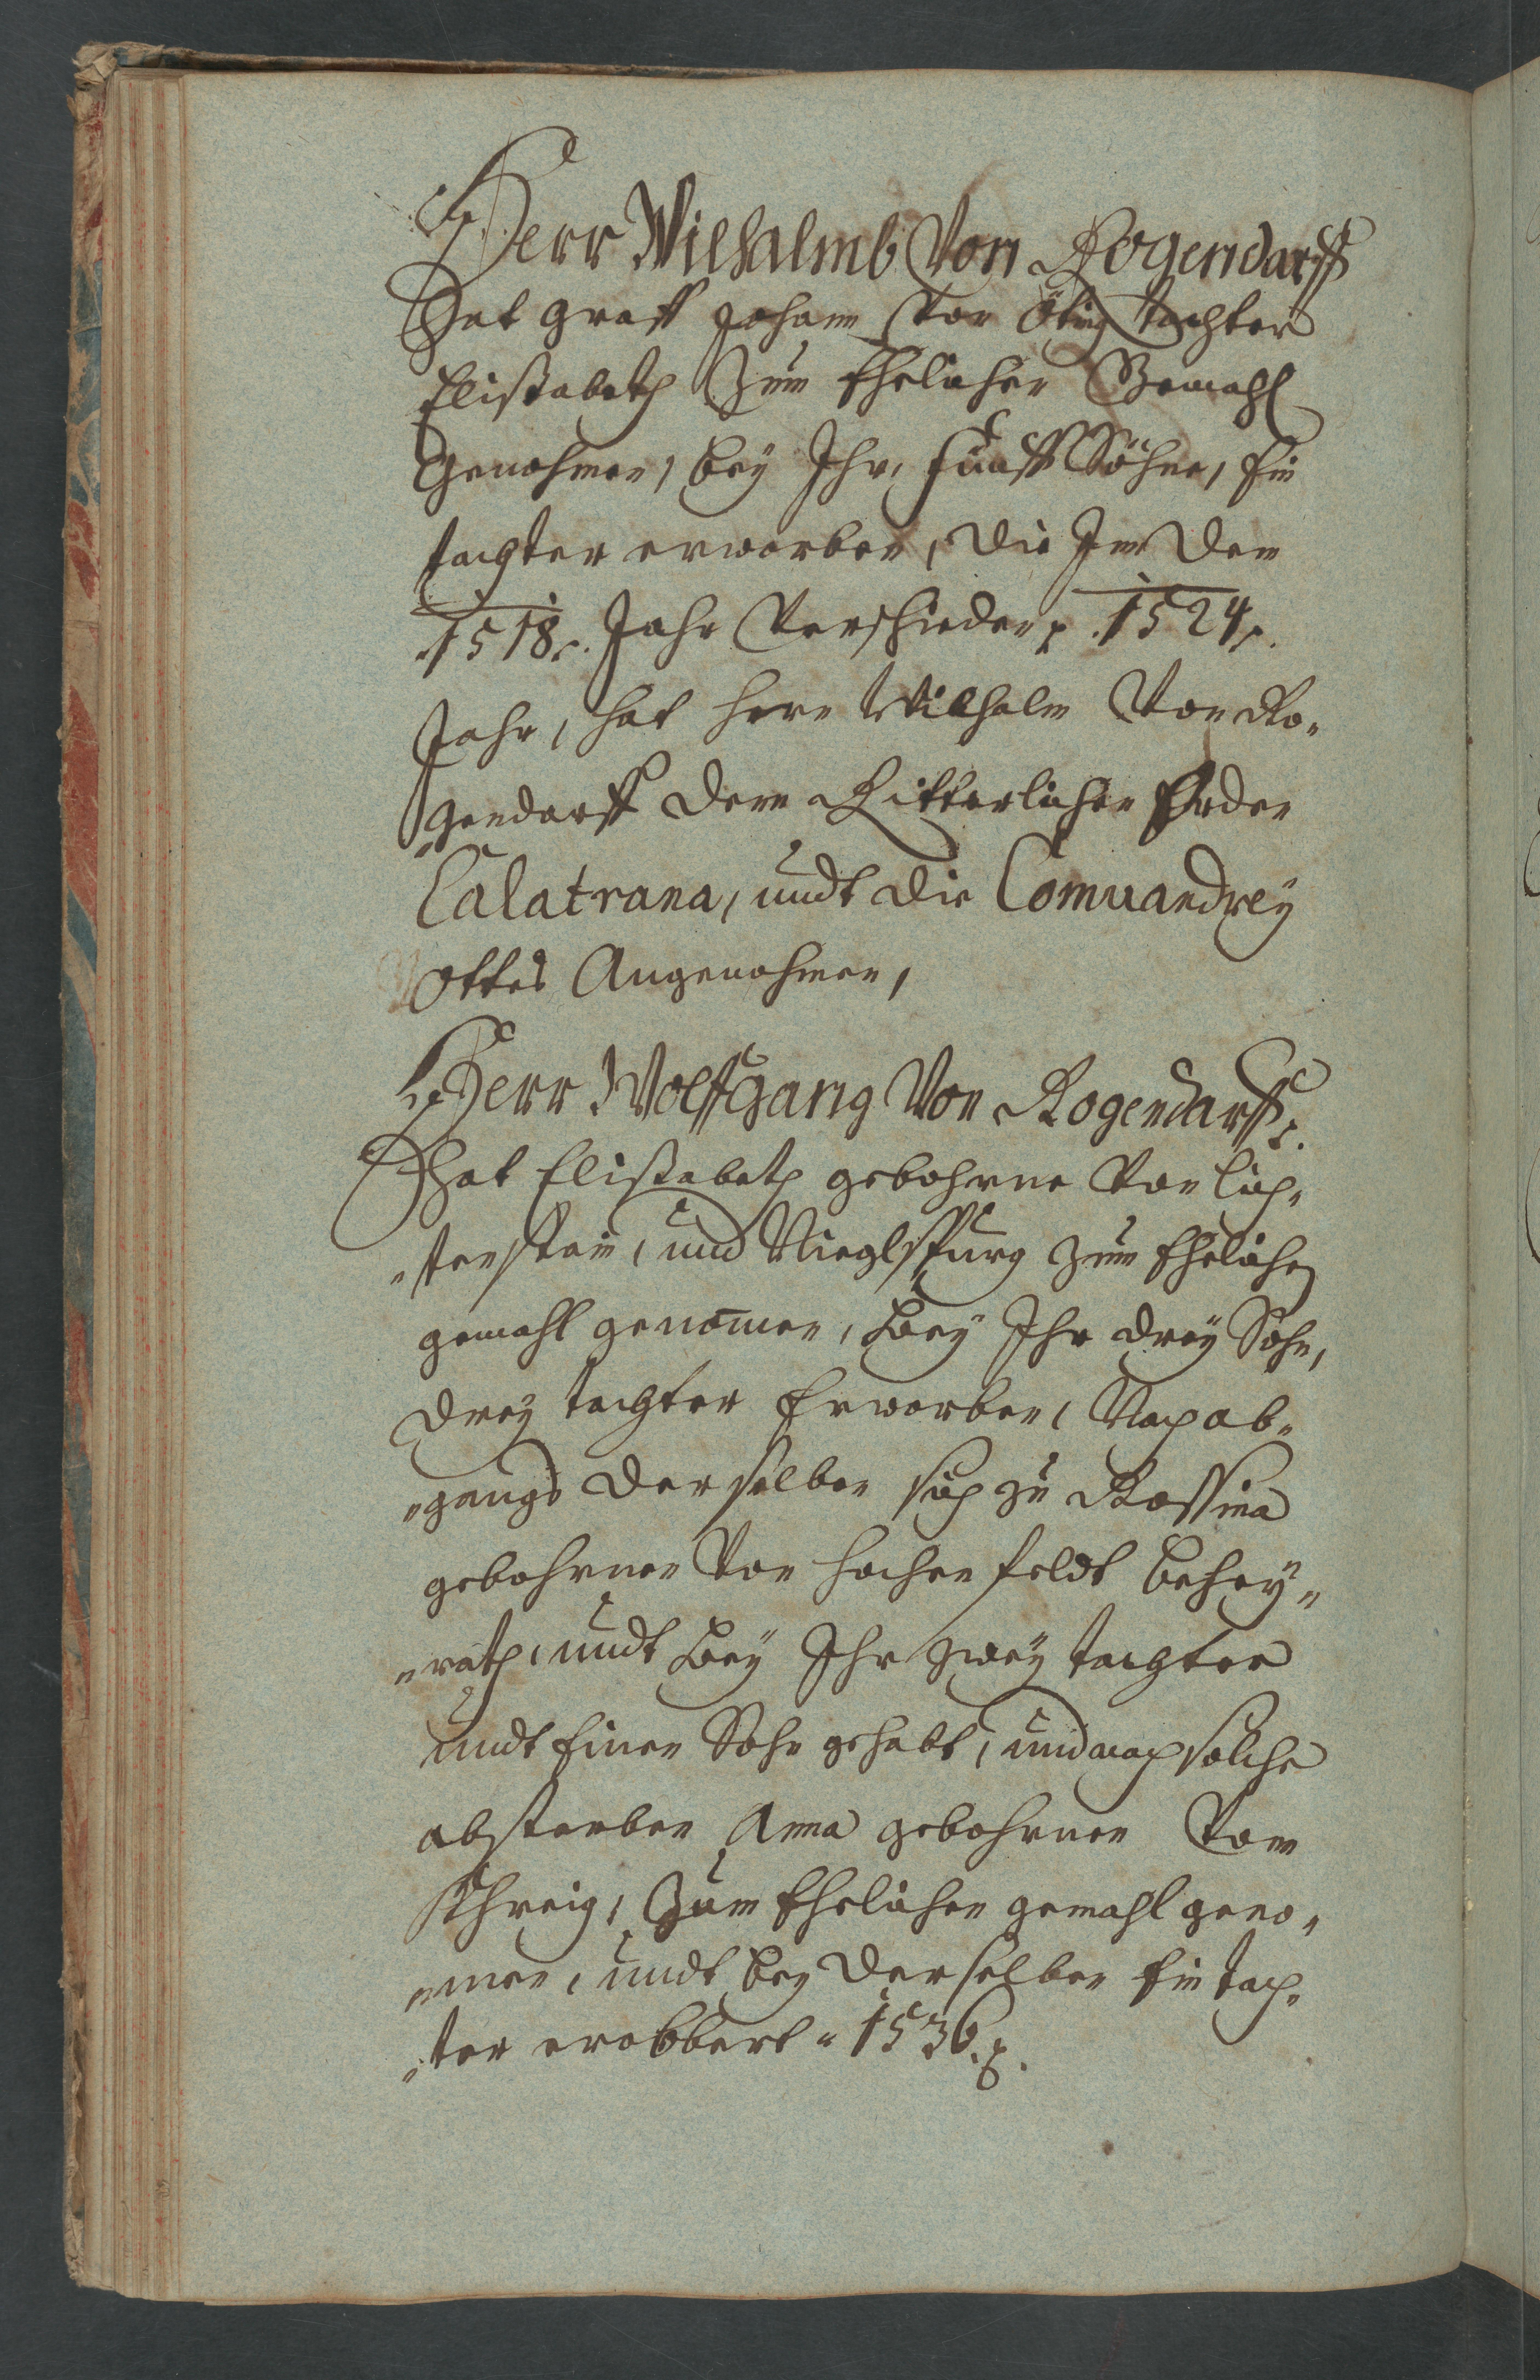 Herr Wilhalmb Von Rogendarff
Hat Graff Johann Von Öting tochter
Elißabeth Zum Ehelichen Gemahl
Genohmen, bey Ihr, fünff Söhne, Ein
tochter erworben, die Im dem
.1518. Jahr Verschieden .1524.
Jahr, hat Herr Wilhalm Von Ro„
„gendorff dem Ritterlichen Orden
Calatrana, undt die Comuandrey
Ottos Angenohmen,
Herr Wolffgang Von Rogendarff.
Hat Elißabeth gebohrne Von Liech„
„tenstein, und Nieglspurg zum Ehelichen
gemahl genomen, bey Ihr drey Sohn,
drey tochter Erworben, Nach ab„
„gangs derselben sich zu Rossina
gebohrnen Von Hochenfeldt behey„
„rath, undt bey Ihr zwey tochter
undt Einen Sohn gehabt, und nach solche
absterben Anna gebohrnen Vom
Khreig, Zum Ehelichen gemahl geno„
„men, undt bey derselben Ein toch„
„ter erobbert 1536.